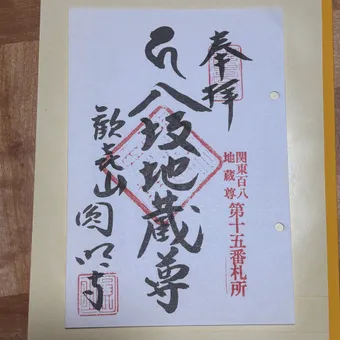 奉拝
関東百八
地蔵尊
第十五番札所
八坂地蔵尊
歓喜山圓明寺